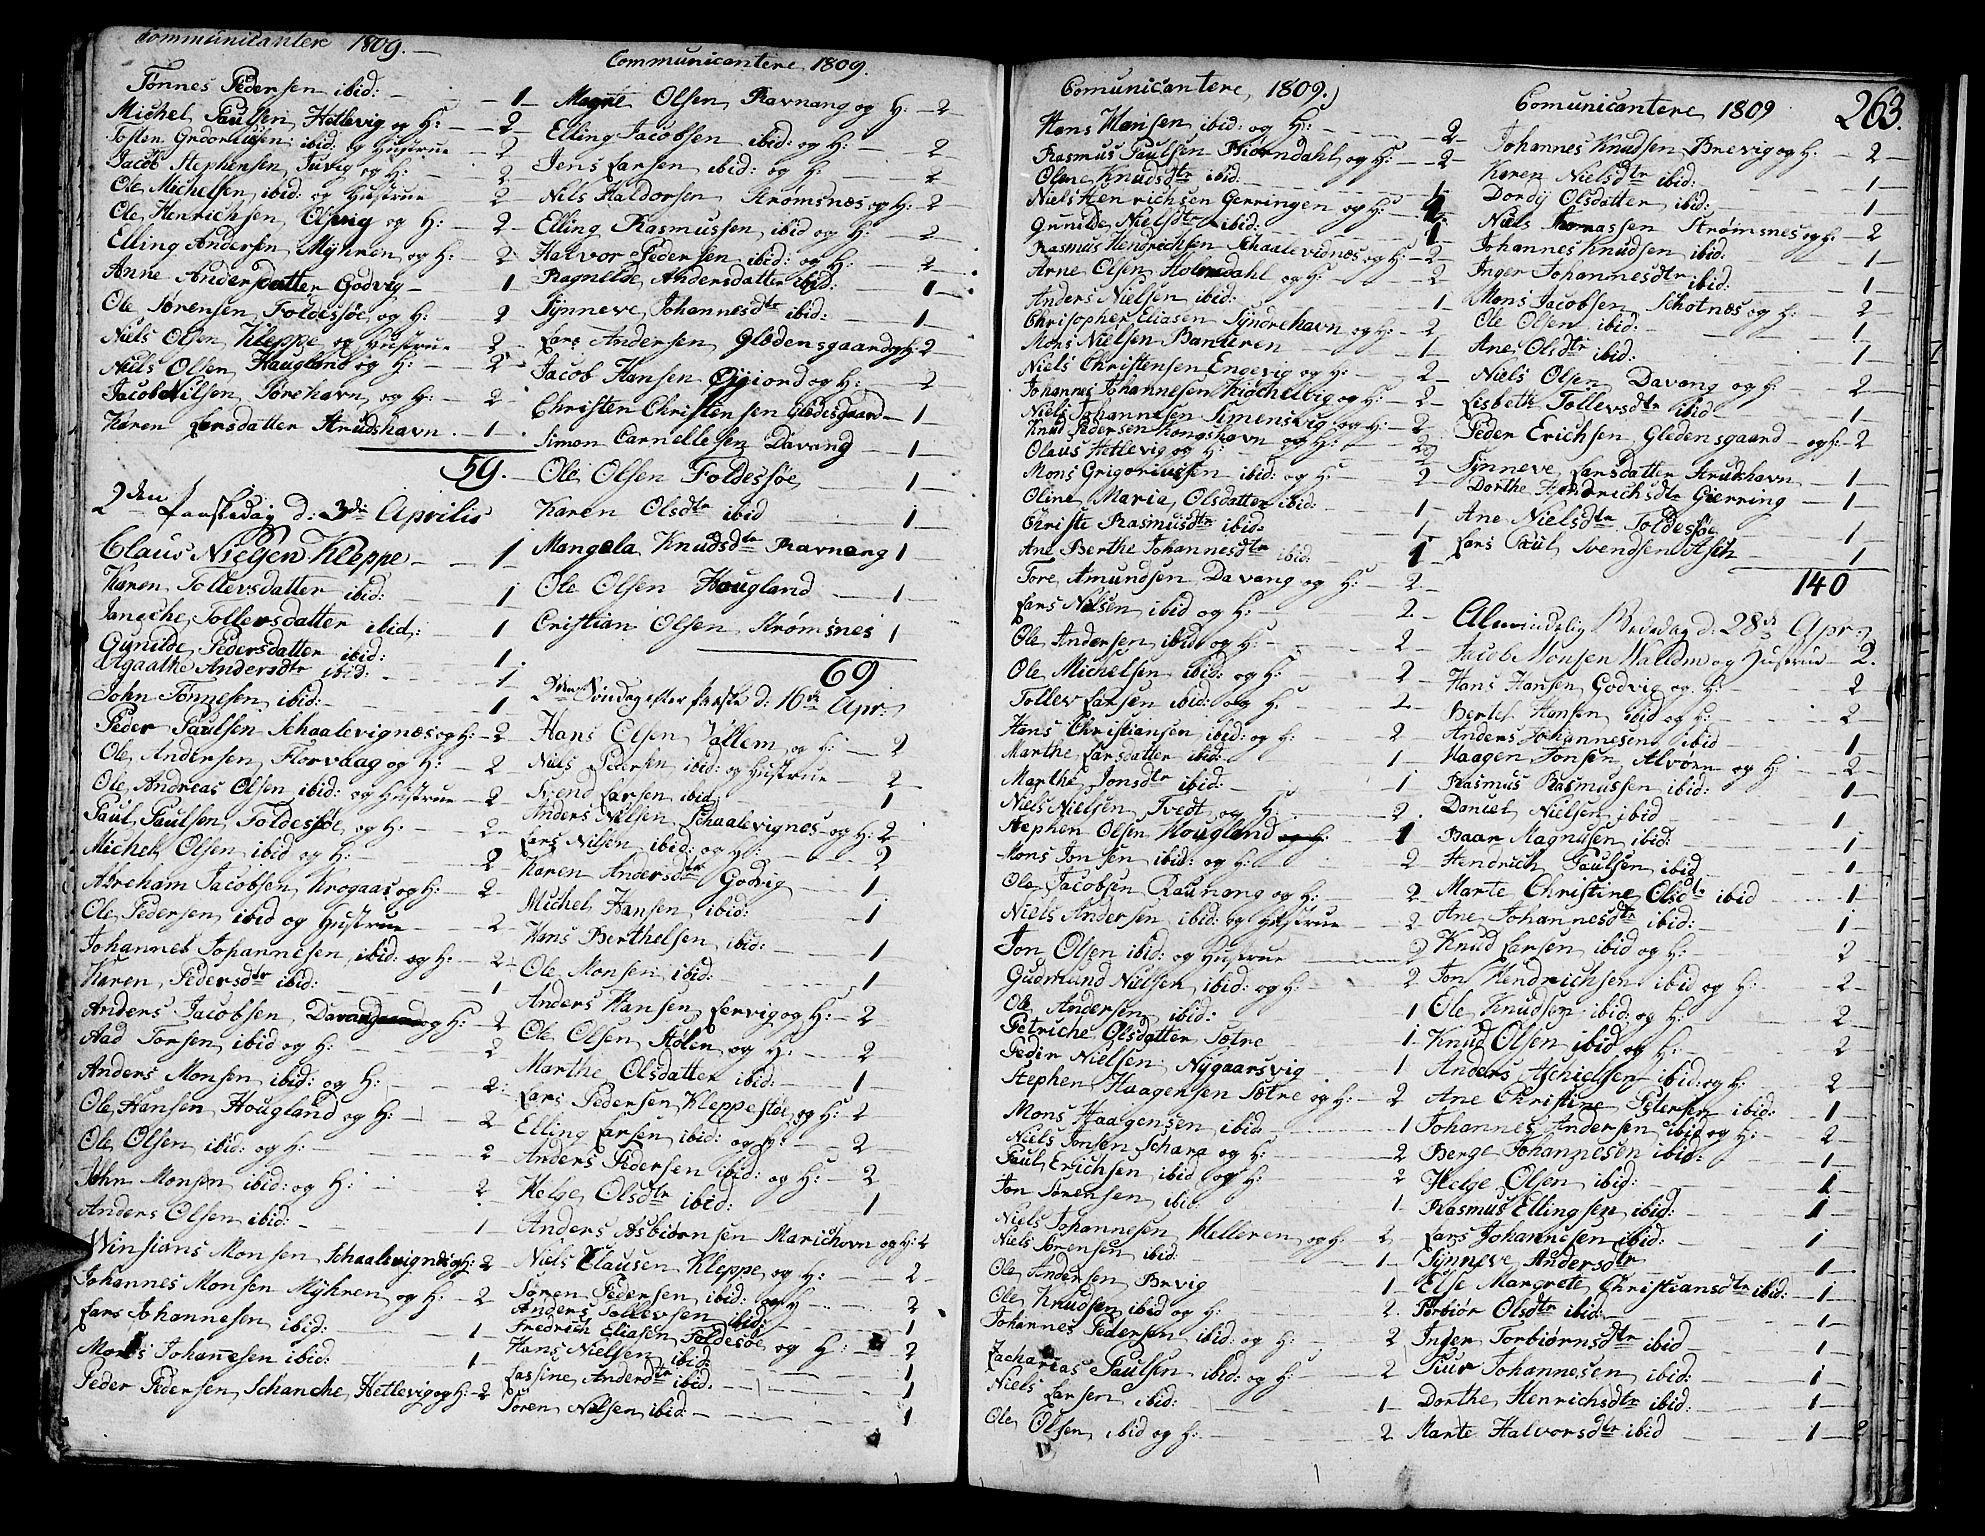 Communicantere 1809.
Tønnes Pedersen ibid: 1
Michel Paulsen, Hetlevig og H: 2
Tosten ibid: og Hustrue 2
Jacob Stephensen, Tuvig og H: 2
Ole Michelsen, ibid: og Hustrue 2
Ole Henrichsen, Olsvig og H: 2
Elling Andersen, Myhren og H: 2
Anne Andersdatter Godvig 1
Ole Sørensen, Foldessøe, og H: 2
Niels Olsen, Kleppe og Hustrue 2
Niels Olsen, Haugland og H: 2
Jacob Nilsen, Sørehavn, og H: 2
Karen Larsdatter Strudshavn 1
59.
2den Paaskedag d: 3die Aprilis
Claus Nielsen Kleppe 1
Karen Tollevsdatter ibid: 1
Tollevsdatter ibid: 1
Gunilde, Pedersdatter ibid: 1
Agaathe Andersdtr ibid: 1
John Tønnesen, ibid: 1
Peder Paulsen Schaalevignæs og H: 2
Ole, Andersen, Florvaag og H: 2
Ole, Andreas Olsen, ibid: og Hustrue 2
Paul, Paulsen, Foldessøe, og H: 2
Michel Olsen, ibid og H: 2
Abraham Jacobsen, Krogaas og H: 2
Ole, Pedersen, ibid og Hustrue 2
Johannes Johannesen, ibid: og H: 2
Karen, Pedersdtr ibid: 1
Anders Jacobsen, og H: 2
Aad Torsen, ibid og H: 2
Anders Monsen, ibid: og H: 2
Ole Hansen, Hougland og H: 2
Ole Olsen, ibid: og H: 2
John Monsen, ibid: og H: 2
Anders Olsen, ibid: 1
Monsen, Schaalevignæs og H: 2
Johannes Monsen Myhren, og H: 2
Lars Johannesen, ibid: 1
Mons Johanesen ibid: 1
Peder Pedersen, Schanche, Hetlevig og H: 2
Communicantere, 1809.
Magne Olsen, Ravnang og H: 2
Elling Jacobsen ibid: og H: 2
Jens Larsen ibid: og H: 2
Nils Haldorsen Strømsnæs og H: 2
Elling Rasmussen, ibid og H: 2
Halvor Pedersen ibid: og H: 2
Ragnilde, Andersdatter ibid: 1
Synneve, Johannesdtr ibid: 1
Lars Andersen, Glædensgaard og H: 2
Jacob Hansen Øÿiord og H: 2
Christen Christensen Glædesgaard 1
Simon Carnellesen Davang 1
Ole Olsen Foldessøe 1
Karen Olsdtr ibid 1
Mangela Knudsdtr Ravnang 1
Ole Olsen Hougland 1
Cristian Olsen Strømsnes 1
69
2den Søndag efter Paaske d: 16de Apr:
Hans Olsen, Vallem, og H: 2
Niels Pedersen, ibid: og Hustrue 2
Svend Larsen, ibid: 1
Anders Nielsen, Schaalevignes og H: 2
Lars Nilsen, ibid: og H: 2
Karen Andersdtr Godvig 1
Michel Hansen, ibid: 1
Hans Berthelsen, ibid: 1
Ole, Monsen, ibid: 1
Anders Hansen, Lervig og H: 2
Ole Olsen, Stølen, og H: 2
Marthe Olsdatter ibid: 1
Lars Pedersen, Kleppestøe, og H: 2
Elling Larsen, ibid: og H: 2
Anders Pedersen ibid: og H: 2
Helge, Olsdtr ibid: 1
Anders Asbiørnsen Marichovn og H: 2
Niels Clausen Kleppe, og H: 2
Søren Pedersen, ibid: og H 2
Anders Tollevsen, ibid: 1
Fredrich Eliasen, Foldesøe, og H: 2
Hans Nielsen, ibid: 1
Lassine, Andersdtr ibid: 1
Søren Nilsen, ibid: 1
Comunicantere, 1809.
Hans Hansen, ibid: og H: 2
Rasmus Paulsen, Biørndahl, og H: 2
Oline Knudsdtr ibid:
Niels Henrichsen Gerringen og H:
Gunilde, Nielsdtr ibid: 1
Rasmus Hendrichsen Schaalevidnæs og H: 2
Arne Olsen, Holmedahl og H: 2
Anders Nielsen, ibid: 1
Christopher, Eliasen, Syndrehavn og H: 2
Mons Nielsen, Banteren 1
Niels Christensen Engevig og H: 2
Johannes Johannesen, og H: 2
Niels Johannesen, Simensvig og H: 2
Knud Pedersen Kongshavn og H: 2
Olaus Hetlevig og H: 2
Mons Grigoriusen ibid: og H: 2
Oline Maria, Olsdatter ibid: 1
Christe Rasmusdtr ibid: 1
Ane Berthe Johannesdtr ibid: 1
Tore, Amundsen Davang og H: 2
Lars Nilsen, ibid og H: 2
Ole Andersen, ibid og H: 2
Ole Michelsen, ibid: og H: 2
Tollev Larsen ibid: og H 2
Hans Christiansen, ibid: og H: 2
Marthe Larsdatter ibid: 1
Marthe, Jonsdtr ibid: 1
Niels Nielsen, Tvedt og H: 2
Stephen Olsen Hougland 1
Mons Jonsen, ibid: og H: 2
Ole, Jacobsen Raunang og H: 2
Niels Andersen ibid: og Hustrue 2
Jon Olsen ibid: og Hustrue 2
Gudmund Nielsen, ibid: og H: 2
Ole Andersen, ibid: 1
Petriche Olsdatter Sætre 1
Peder Nielsen, Nÿgaarsvig 1
Stephen, Haagensen Sætre og H: 2
Mons Haagensen, ibid 1
Niels Jonsen Schara og H: 2
Paul, Erichsen ibid og H: 2
Jon Sørensen, ibid: 1
Niels Johannesen, Helleren og H: 2
Niels Sørensen, ibid: 1
Ole, Andersen, Brvig 1
Ole, Knudsen ibid og H: 2
Johannes Pedersen, ibid: og H: 2
Zacharias Paulsen, ibid: og H: 2
Niels Larsen, ibid: 1
Ole Olsen, ibid og H: 2
Comunicantere, 1809
263.
Johannes Knudsen, Brevig og H. 2
Karen Nielsdtr ibid: 1
Dordy Olsdatter, ibid: 1
Niels Thomassen Strømsnes og H: 2
Johannes Knudsen, ibid: 1
Inger Johannesdtr ibid: 1
Mons Jacobsen, Schotnæs og H: 2
Ole Olsen ibid: 1
Ane, Olsdtr ibid: 1
Niels Olsen, Davang og H: 2
Lisbeth Tollevsdtr ibid 1
Peder Erichsen, Gledensgaard og H: 2
Synneve, Larsdatter Strudshavn 1
Dorthe Hendrichsdtr Gierring 1
Ane Nielsdtr Foldessøe 1
Lars Paul, Svendsen, 1
140
Almindelig Bededag d: 28de Apr:
Jacob Monsen Walldm og Hustrue 2.
Hans Hansen, Godvig og H: 2
Bertel Hansen, ibid og H: 2
Anders Johannesen, ibid 1
Haagen Jonsen, Alvøen og H: 2
Rasmus Rasmussen ibid: 1
Daniel, Nielsen, ibid 1
Baar Magnusen, ibid: 1
Hendrich Paulsen, ibid 1
Marte Christine, Olsdtr ibid 1
Ane Johannesdtr ibid: 1
Knud Larsen ibid og H: 2
Jon Hendrichsen ibid og H: 2
Ole Knudsen ibid: og H: 2
Knud Olsen ibid og H: 2
Anders ibid: og H: 2
Ane Christine Petersen, ibid: 1
Johannes Andersen, ibid og H: 2
Berge Johannesen ibid: 1
Helge Olsen, ibid: 1
Rasmus Ellingsen, ibid: 1
Lars Johannesen ibid: 1
Synneve, Andersdtr 1
Else Margrete, Christiansdtr ibid: 1
Torbiør Olsdtr ibid: 1
Inger Torbiørnsdtr ibid 1
Johannesen, ibid: 1
Dorthe, Henrichsdtr ibid: 1
Marte Halvorsdtr ibid 1